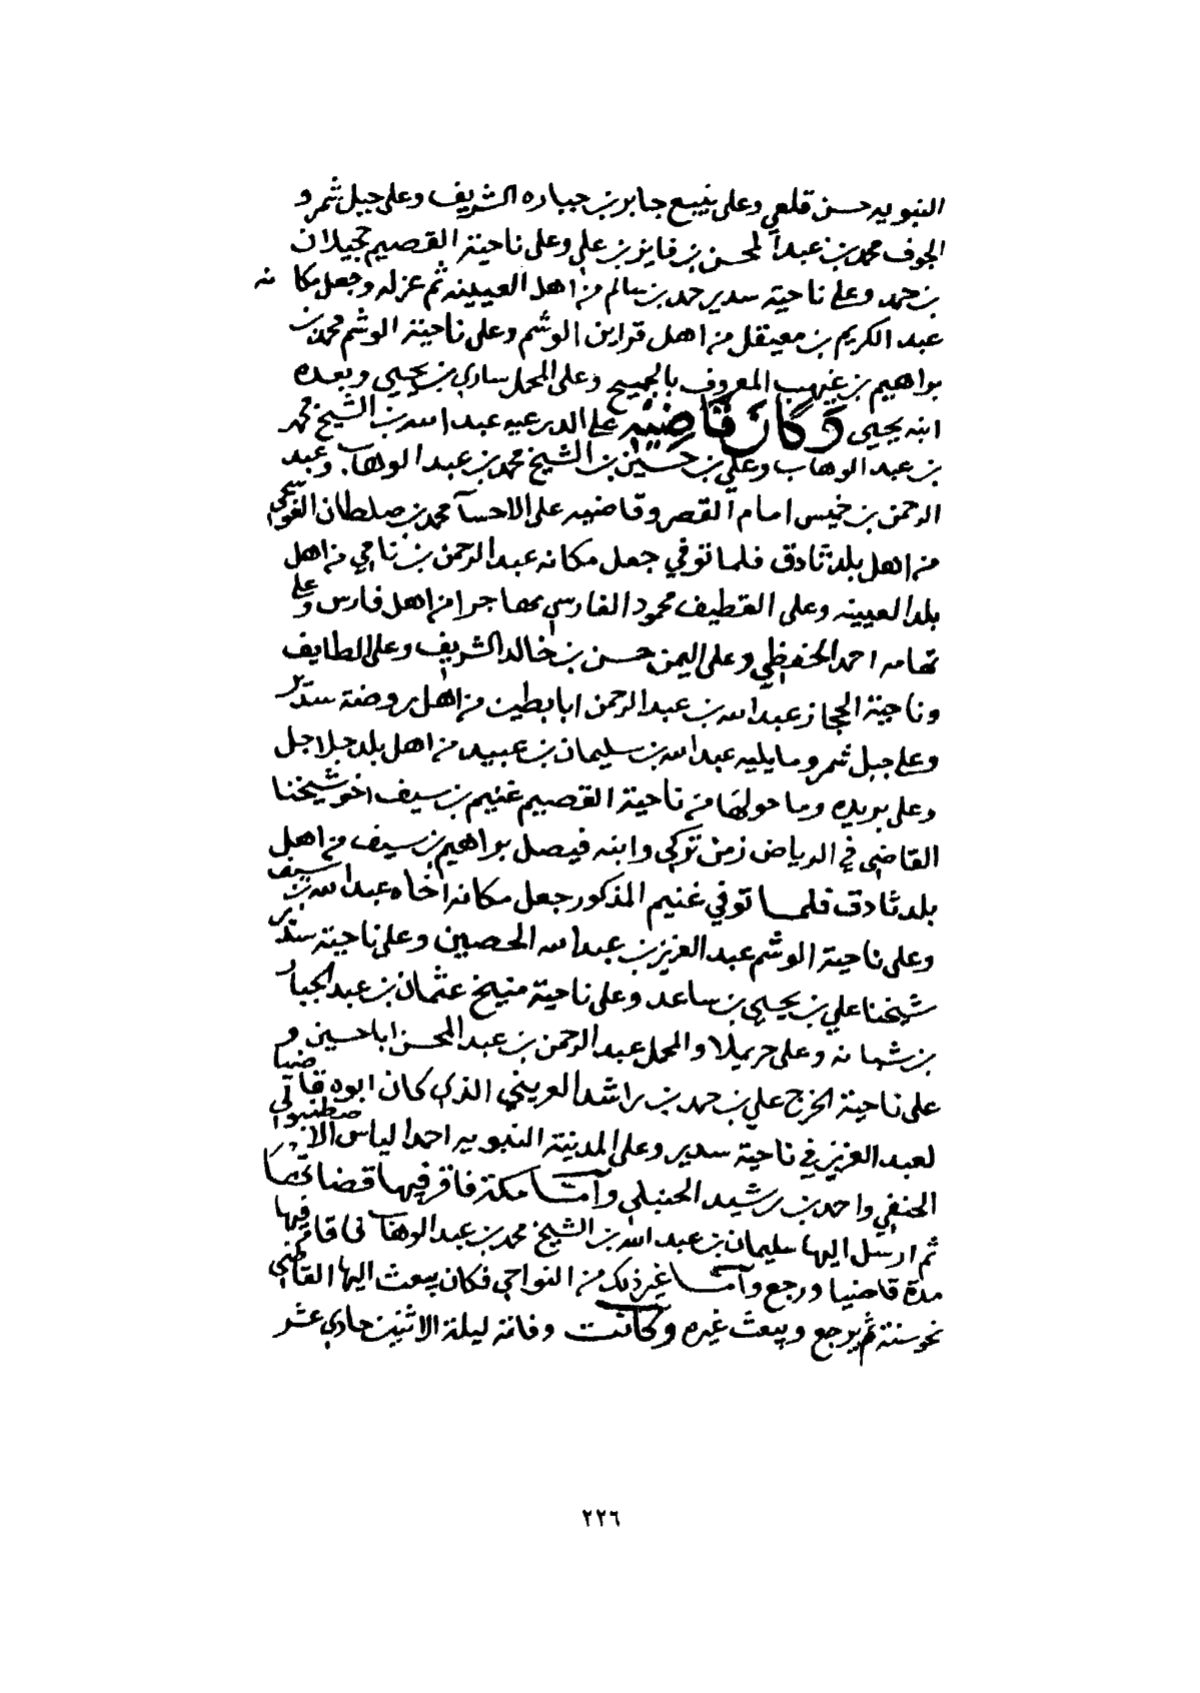 النبويه حسن قلعي وعلى ينبع جابر بن جباره الشريف وعلى جبل شمر و
الجوف محمد بن عبد المحسن بن فايز بن علي وعلى ناحية القصيم حجيلان
بن حمد وعلى ناحية سدير حمد بن سالم من اهل العيينه ثم عزله وجعل مكانه
عبد الكريم بن معيقل من اهل قراين الوشم وعلى ناحية الوشم محمد بن
براهيم بن غيهب المعروف بالجميح وعلى المحمل ساري بن يحيى وبعده
ابنه يحيى وكان قاضيه على الدرعيه عبد الله بن الشيخ محمد
بن عبد الوهاب وعلي بن حسين بن الشيخ محمد بن عبد الوهاب وعبد
الرحمن بن خميس امام القصر وقاضيه على الاحسآ محمد بن صلطان العوسجي
من اهل بلد ثادق فلما توفي جعل مكانه عبد الرحمن بن نامي من اهل
بلد العيينه وعلى القطيف محمود الفارسي مهاجرا من اهل فارس وعلى
تهامه احمد الحفظي وعلى اليمن حسن بن خالد الشريف وعلى الطايف
وناحية الحجاز عبد الله بن عبد الرحمن ابابطين من اهل روضة سدير
وعلى جبل شمر وما يليه عبد الله بن سليمان بن عبيد من اهل بلد جلاجل
وعلى بريده وما حولها من ناحية القصيم غنيم بن سيف اخو شيخنا
القاضي في الرياض زمن تركي وابنه فيصل براهيم بن سيف من اهل
بلد ثادق فلما توفي غنيم المذكور جعل مكانه اخاه عبد الله بن سيف
وعلى ناحية الوشم عبد العزيز بن عبد الله الحصين وعلى ناحية سدير
شيخنا علي بن يحيى بن ساعد وعلى ناحية منيخ عثمان بن عبد الجبار
بن شبانه وعلى حريملا والمحمل عبد الرحمن بن عبد المحسن اباحسين و
على ناحية الخرج علي بن حمد بن راشد العريني الذي كان ابوه قاضيا
لعبد العزيز في ناحية سدير وعلى المدينة النبويه احمد الياس الاصطنبولي
الحنفي واحمد بن رشيد الحنبلي وأما مكة فاقر فيها قضاتها
ثم ارسل اليها سليمان بن عبد الله بن الشيخ محمد بن عبد الوهاب فاقام فيها
مدة قاضيا ورجع وأما غير ذلك من النواحي فكان يبعث اليها القاضي
نحو سنة ثم يرجع ويبعث غيره وكانت وفاته ليلة الاثنين حادي عشر
٢٢٦